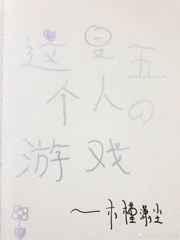 这是五
个人の
游戏
～木槿